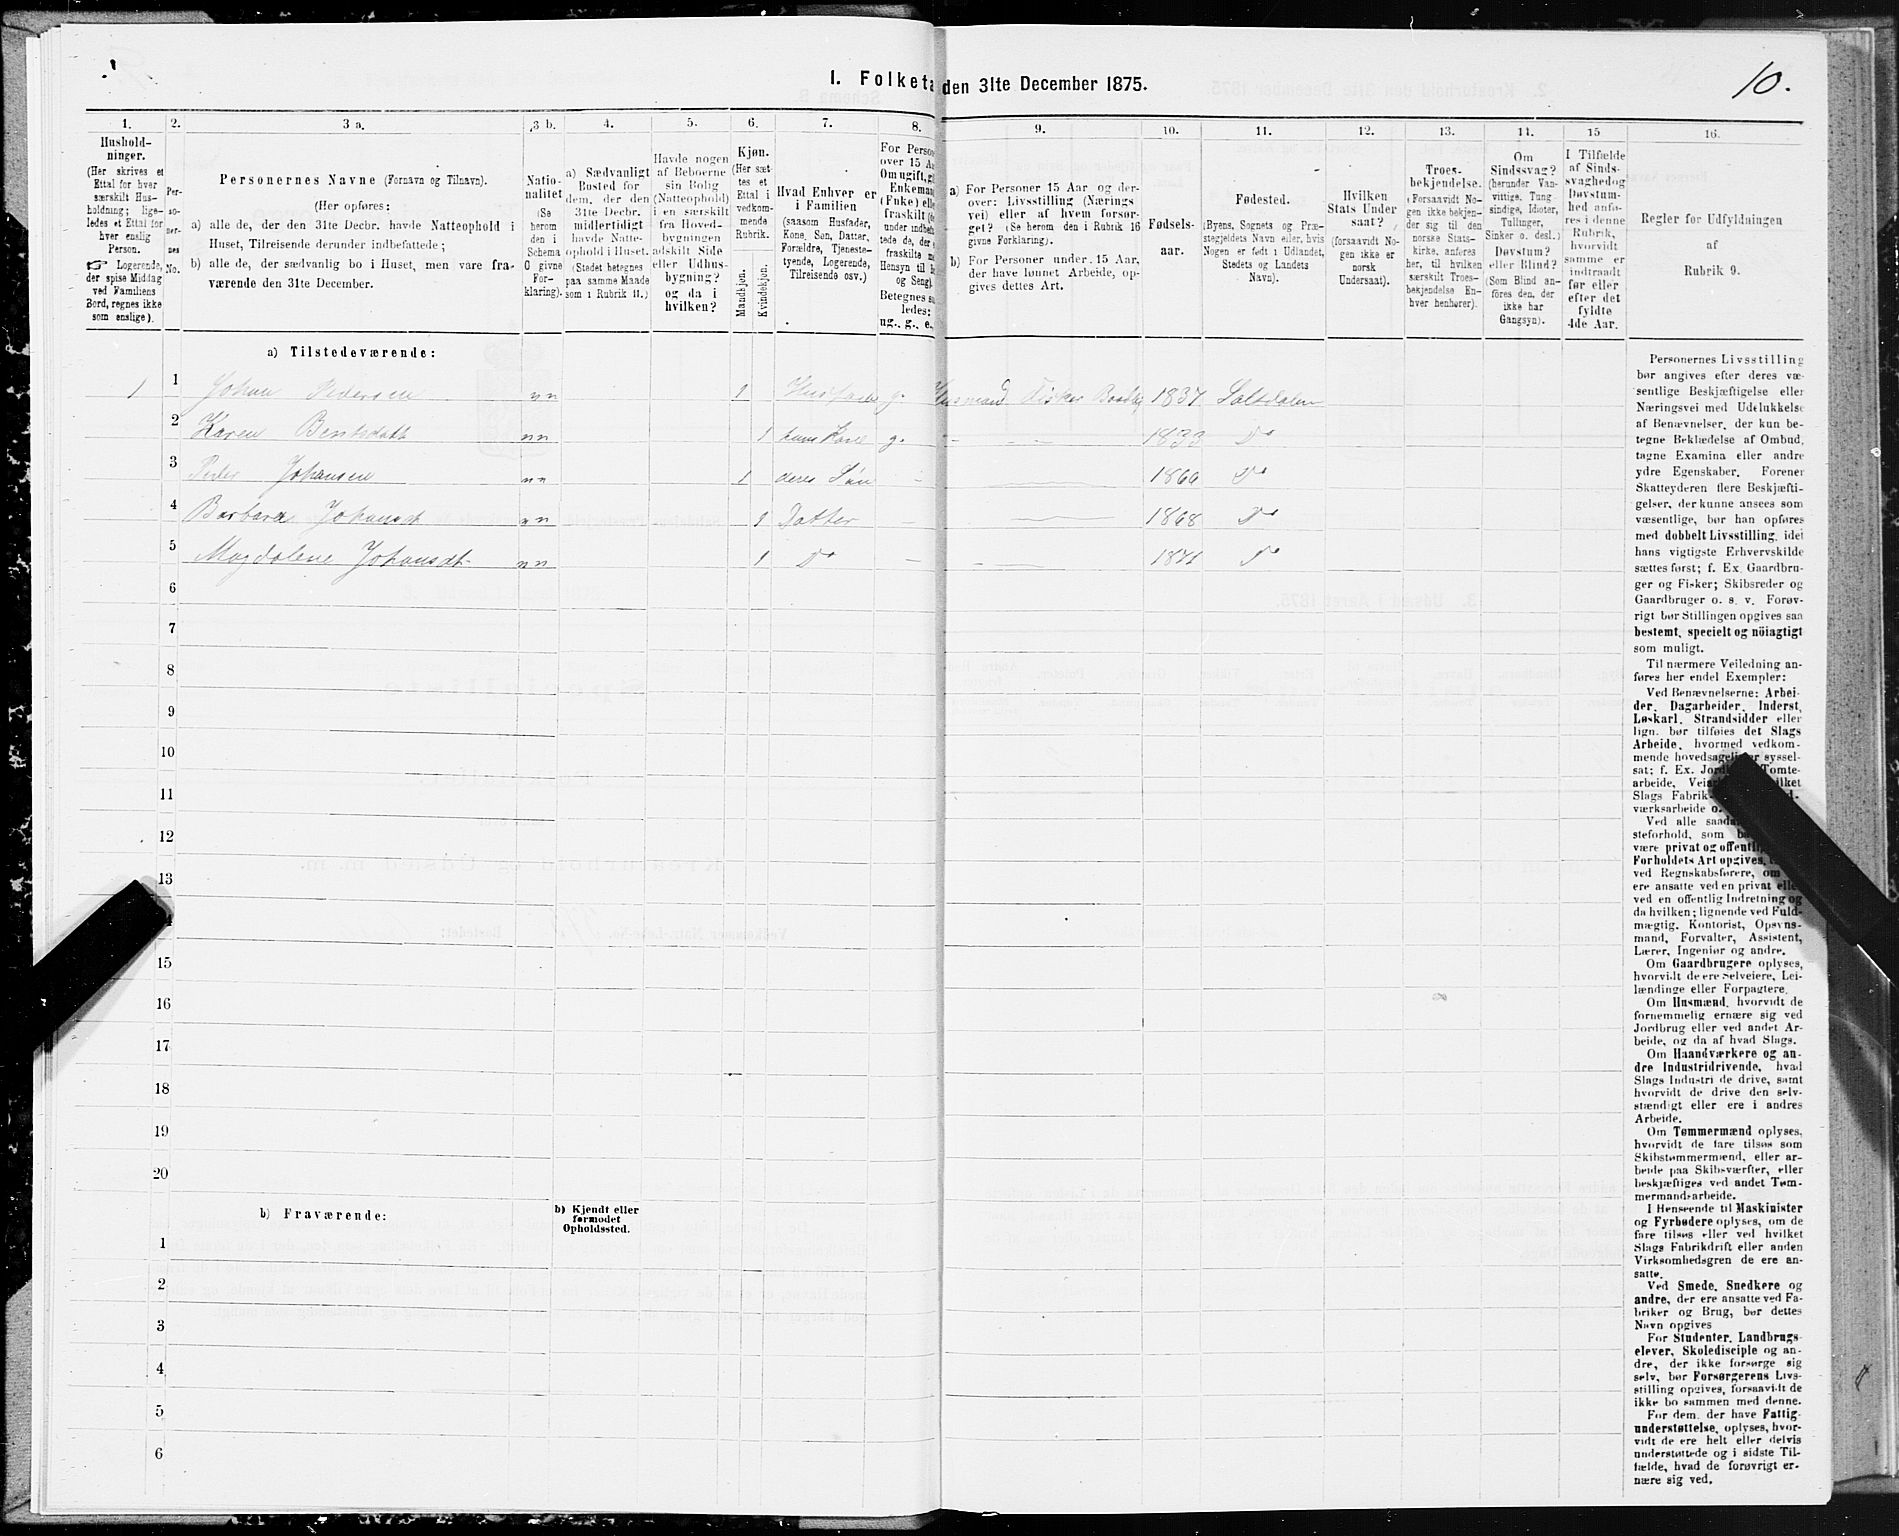 I. Folketæ den 31te December 1875.
10.
1.
2.
3 a.
3 b.
4.
5.
6.
7.
8.
9.
10.
11.
12.
13.
14.
15
16.
Hushold-
ninger.
(Her skrives et
Ettal for hver
særskilt Hus-
holdning; lige-
ledes et Ettal for
hver enslig
Person.
☞ Logerende,
der spise Middag
ved Familiens
Bord, regnes ikke
som enslige).
Per-
so-
ner-
nes
No.
Personernes Navne (Fornavn og Tilnavn).
(Her opføres:
a) alle de, der den 31te Decbr. havde Natteophold i
Huset, Tilreisende derunder indbefattede;
b) alle de, der sædvanlig bo i Huset, men vare fra-
værende den 31te December.
Natio-
nalitet
(Se
herom
den i
Schema
O givne
For-
klaring).
a) Sædvanligt
Bosted for
dem, der den
31te Decbr.
midlertidigt
havde Natte-
ophold i Huset.
(Stedet betegnes
paa samme Maade
som i Rubrik 11.)
Havde nogen
af Beboerne
sin Bolig
(Natteophold)
i en særskilt
fra Hoved-
bygningen
adskilt Side
eller Udhus-
bygning?
og da i
hvilken?
Kjøn.
(Her sæt-
tes et
Ettal i
vedkom-
mende
Rubrik.
Mandkjøn.
Kvindekjøn.
Hvad Enhver er
i Familien
(saasom Husfader,
Kone, Søn, Datter,
Forældre, Tjeneste-
tyende, Logerende,
Tilreisende osv.)
For Perso
over 15 A
Om ugift, g
Enkeman
(Enke) elle
fraskilt (de
under indbef
tede de, der
fraskilte m
Hensyn til B
og Seng).
Betegnes sa
ledes:
ug., g., e.,
a) For Personer 15 Aar og der-
over: Livsstilling (Nærings
vei) eller af hvem forsør-
get? (Se herom den i Rubrik 16
givne Forklaring).
b) For Personer under 15 Aar,
der have lønnet Arbeide, op-
gives dettes Art.
Fødsels-
aar.
Fødested.
(Byens, Sognets og Præ-
stegjeldets Navn eller, hvis
Nogen er født i Udlandet,
Stedets og Landets
Navn).
Hvilken
Stats Under
saat?
(forsaavidt No-
gen ikke er
norsk
Undersaat).
Troes-
bekjendelse.
(Forsaavidt No-
gen ikke bekjen-
der sig til den
norske Stats-
kirke, anføres
her, til hvilken
særskilt Troes-
bekjendelse En-
hver henhører).
Om
Sindssvag?
(herunder Van-
vittige, Tung-
sindige, Idioter,
Tullinger,
Sinker o. desl.)
Døvstum?
eller Blind?
(Som Blind an-
føres den, der
ikke har
Gangsyn).
I Tilfælde
af Sinds-
svaghed og
Døvstum-
hed anfø-
res i denne
Rubrik,
hvorvidt
samme er
indtraadt
før eller
efter det
fyldte
4de Aar.
Regler før Udfyldningen
af
Rubrik 9.
a) Tilstedeværende:
1 1 Johan Pedersen nn 1 Husfader g. Husmand Fisker 1837 Saltdalen
2 Karen Bentsdatt nn 1 hans Kone g. – – 1833 Do
3 Peder Johansen nn 1 deres Søn – 1866 Do
4 Barbara Johansdt nn 1 Datter – 1868 Do
5 Magdalene Johansdt nn 1 Do – 1871 Do
6
7
8
9
10
11
12
13
4
15
16
17
18
19
20
b) Fraværende:
b) Kjendt eller
formodet
Opholdssted.
1
2
3
4
5
6
Personernes Livsstilling
bør angives efter deres væ-
sentlige Beskjæftigelse eller
Næringsvei med Udelukkelse
af Benævnelser, der kun be-
tegne Beklædelse af Ombud,
tagne Examina eller andre
ydre Egenskaber. Forener
Skatteyderen flere Beskjæfti-
gelser, der kunne ansees som
væsentlige, bør han opføres
med dobbelt Livsstilling, idet
hans vigtigste Erhvervskilde
sættes først; f. Ex. Gaardbru-
ger og Fisker; Skibsreder og
Gaardbruger o. s. v. Forøv-
rigt bør Stillingen opgives saa
bestemt, specielt og nöiagtigt
som muligt.
Til nærmere Veiledning an-
føres her endel Exempler:
Ved Benævnelserne: Arbei-
der, Dagarbeider, Inderst,
Løskarl, Strandsidder eller
lign. bør tilføies det Slags
Arbeide, hvormed vedkom-
mende hovedsagelig er syssel-
sat; f. Ex. Jord Tomte-
arbeide, Vei ilket
Slags Fabrik-
værksarbeide o.
Ved alle saada
steforhold, som b
være privat og offentli
Forholdets Art opgives,
ved Regnskabsførere, om
ere ansatte ved en privat elle
ved en offentlig Indretning og
da hvilken; lignende ved Fuld-
mægtig, Kontorist, Opsyns-
mand, Forvalter, Assistent,
Lærer, Ingeniør og andre.
Om Gaardbrugere oplyses,
hvorvidt de ere Selveiere, Lei-
lændinge eller Forpagtere.
Om Husmænd, hvorvidt de
fornemmelig ernære sig ved
Jordbrug eller ved andet Ar-
beide, og da af hvad Slags.
Om Haandværkere og an-
dre Industridrivende, hvad
Slags Industri de drive, samt
hvorvidt de drive den selv-
stændigt eller ere i andres
Arbeide.
Om Tømmermænd oplyses,
hvorvidt de fare tilsøs som
Skibstømmermænd, eller ar-
beide paa Skibsværfter, eller
beskjæftiges ved andet Tøm-
mermandsarbeide.
I Henseende til Maskinister
og Fyrbødere oplyses, om de
fare tilsøs eller ved hvilket
Slags Fabrikdrift eller anden
Virksomhedsgren de ere an-
satte.
Ved Smede, Snedkere og
andre, der ere ansatte ved Fa-
briker og Brug, bør dettes
Navn opgives
For Studenter, Landbrugs-
elever, Skoledisciple og an-
dre, der ikke forsørge sig
selv, bør Forsørgerens Livs-
stilling opgives, forsaavidt de
ikke bo sammen med denne.
For dem, der have Fattig-
understøttelse, oplyses, hvor-
vidt de ere helt eller delvis
understøttede og i sidste Til-
fælde, hvad de forøvrigt er-
nære sig ved.